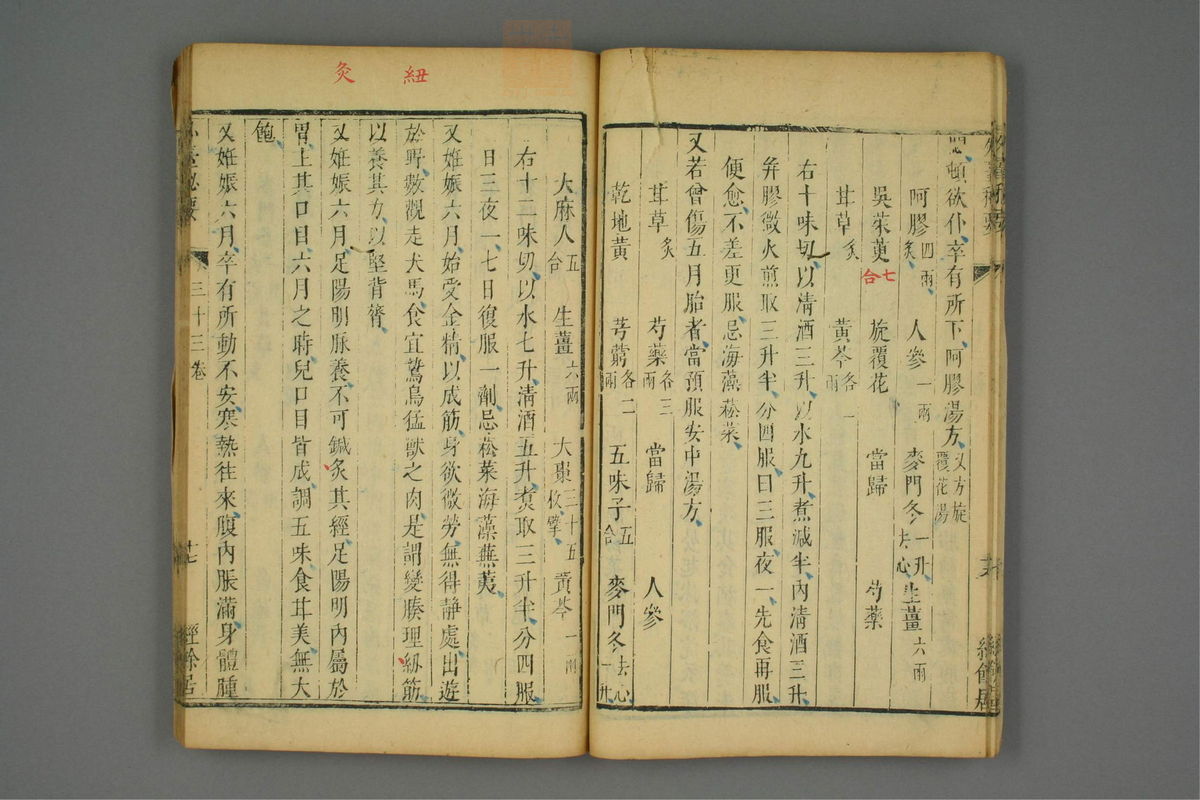 悶頓欲仆卒有所下阿膠湯方又方旋覆花湯
阿膠四兩炙 人參一兩 麥門冬一升去心 生薑六兩
吳茱萸七合 旋覆花 當歸 芍藥
甘草炙 黃芩各一兩
右十味切以清酒三升以水九升煮減半內清酒三升
并膠微火煎取三升半分四服日三服夜一先食再服
便愈不差更服忌海藻菘菜
又若曾傷五月胎者當預服安中湯方
甘草炙 芍藥各三兩 當歸 人參
乾地黃 芎藭各二兩 五味子五合 麥門冬去心一升
紐 灸
大麻人五合 生薑六兩 大棗三十五枚擘 黃芩一兩
右十二味切以水七升清酒五升煑取三升半分四服
日三夜一七日復服一劑忌菘菜海藻蕪荑
又姙娠六月始受金精以成筋身欲微勞無得靜處出遊
於野數觀走犬馬食宜鷙鳥猛獸之肉是謂變腠理紉筋
以養其力以堅背膂
又姙娠六月足陽明脉養不可鍼灸其經足陽明內屬於
胃上其口目六月之時兒口目皆成調五味食甘美無大
飽
又姙娠六月卒有所動不安寒熱往來腹內脹滿身體腫
外臺秘要 三十三卷 十七 經餘居